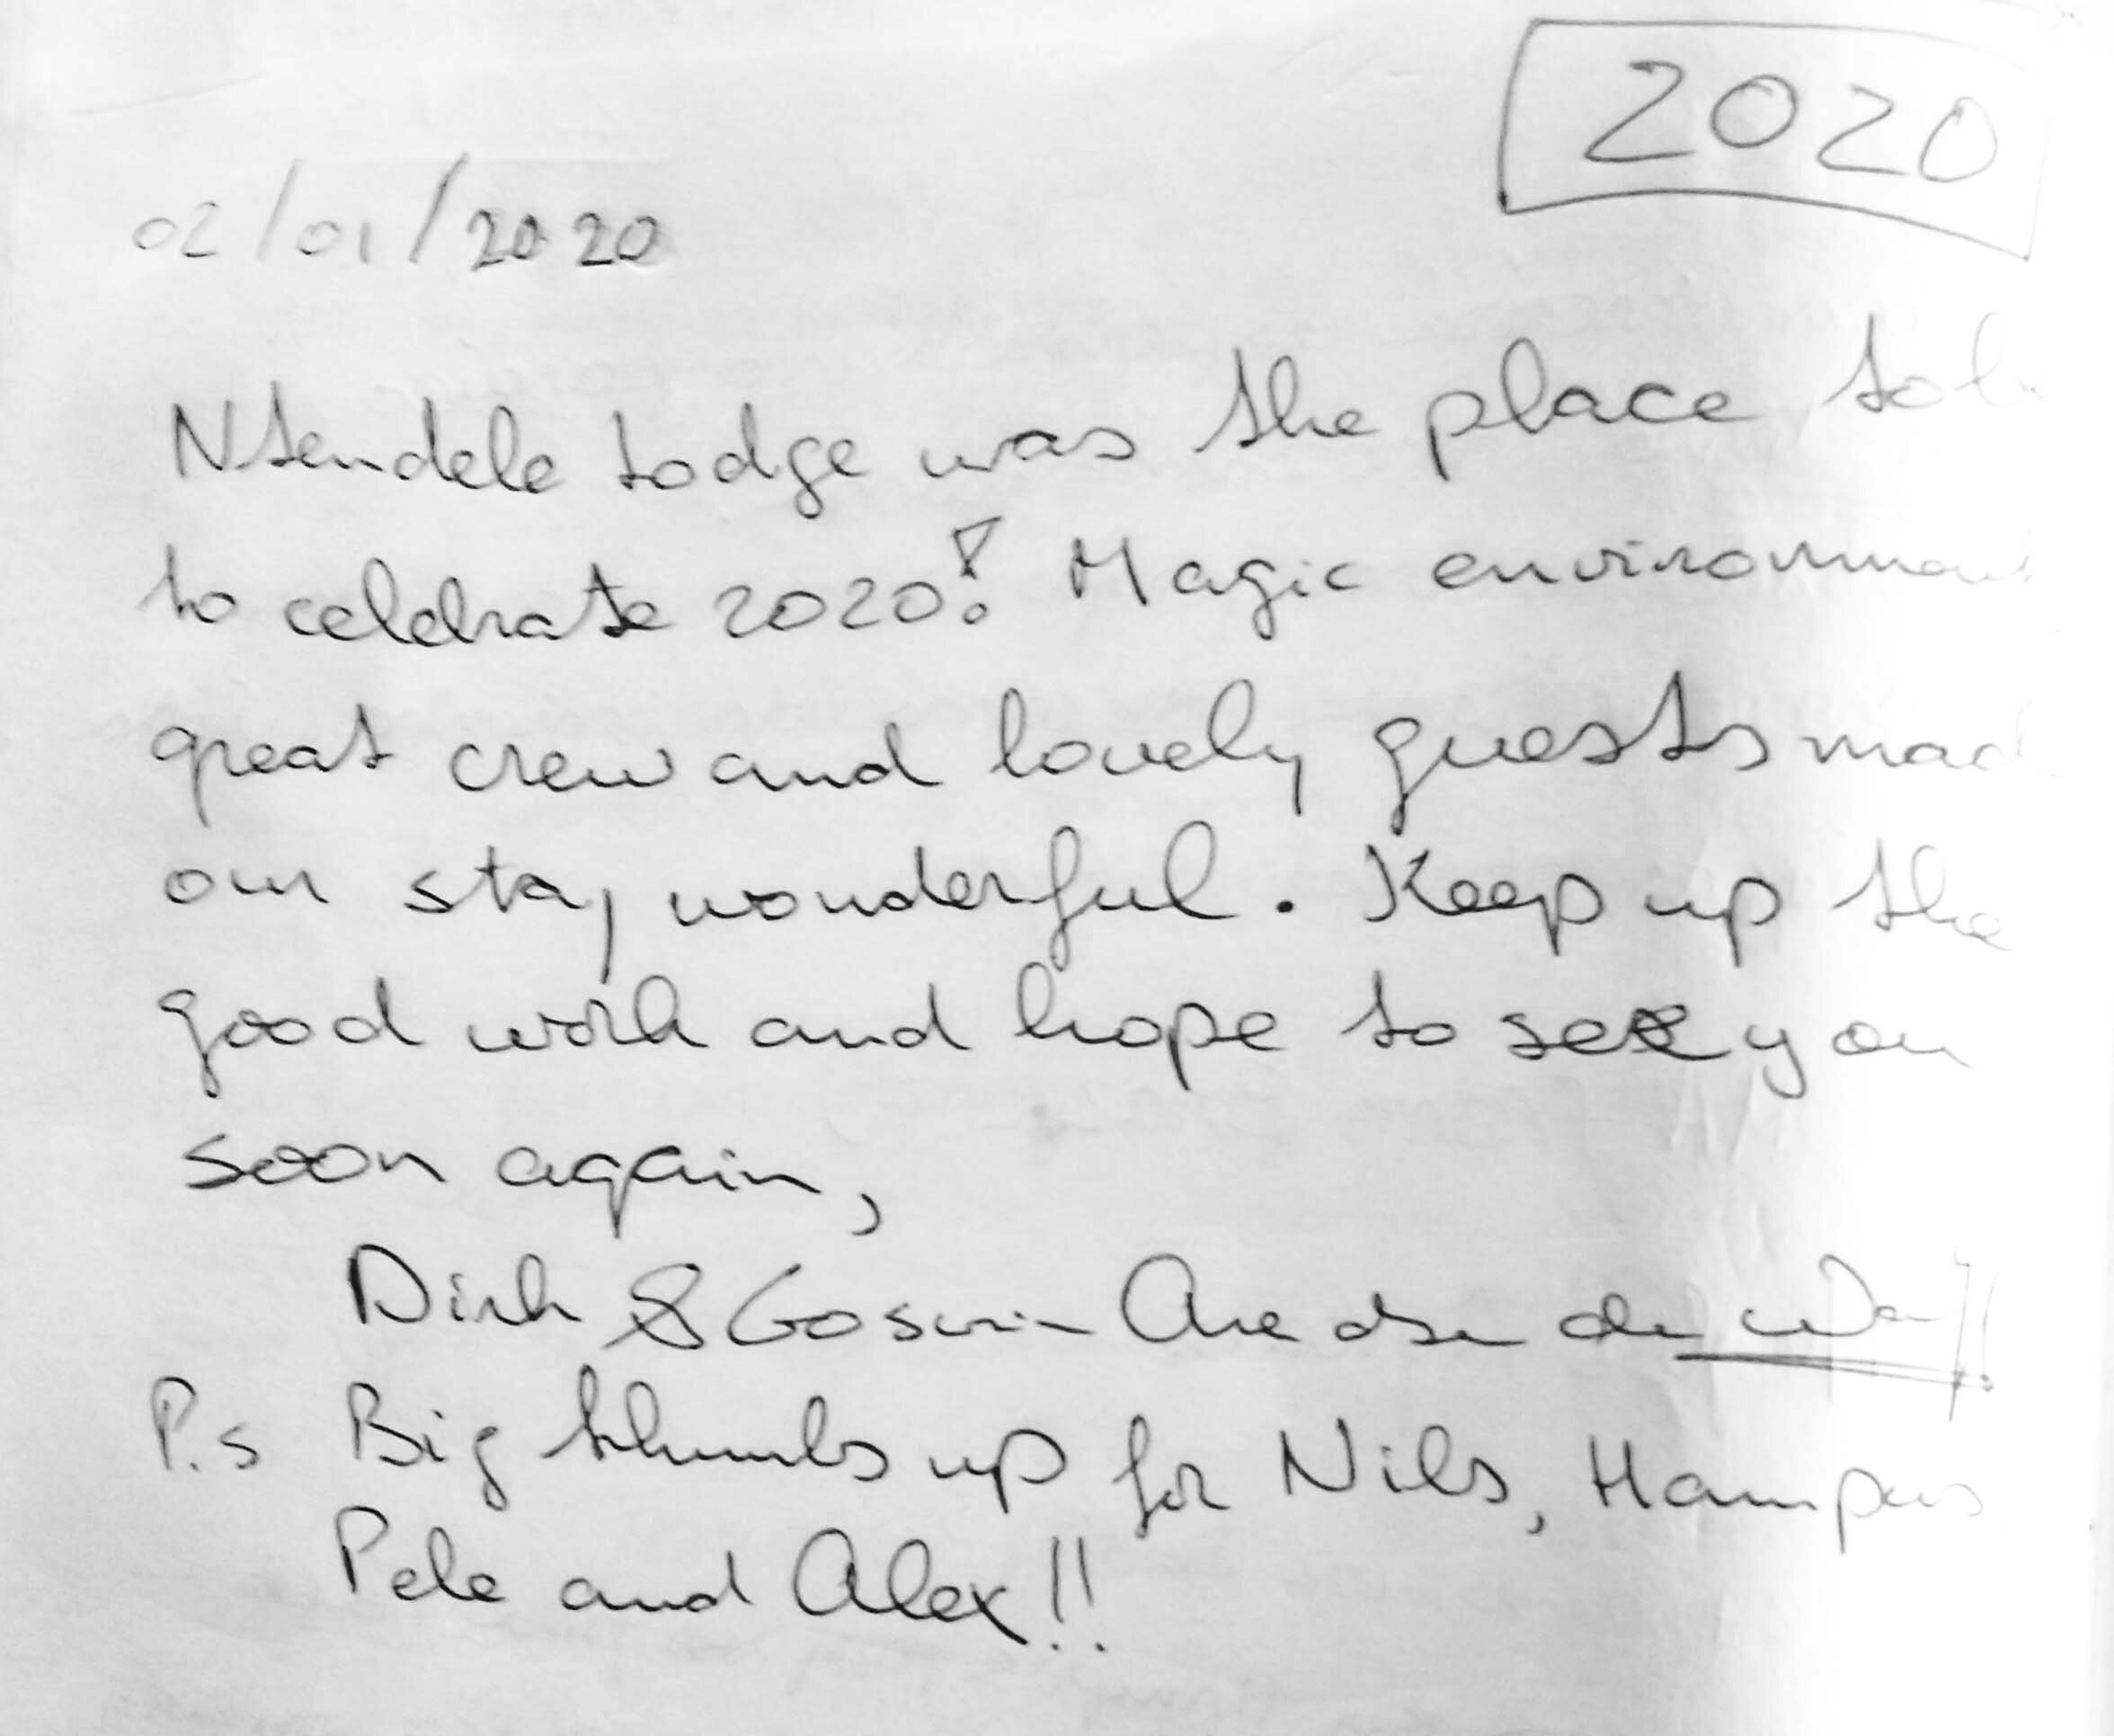 2020
02/01/2020
Ntendele Lodge was the place to
to celebrate 2020! Magic environment
great crew and lovely guests mad
our stay wonderful. Keep up the
good work and hope to see you
soon again,
Dirk & Goswin
P.s Big thumbs up for Nils, Hampus
Pele and Alex!!